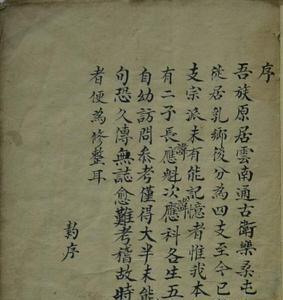 序
吾族原居雲南通古衛樂桑屯
徙居乳鄉後分為四支至今已
支宗派未有能記憶者惟我本
有二子長諱應魁次諱應科各生五
自幼訪問參考僅得大半未能
句恐久傳無誌愈難考稽故時
者便為修整耳
序